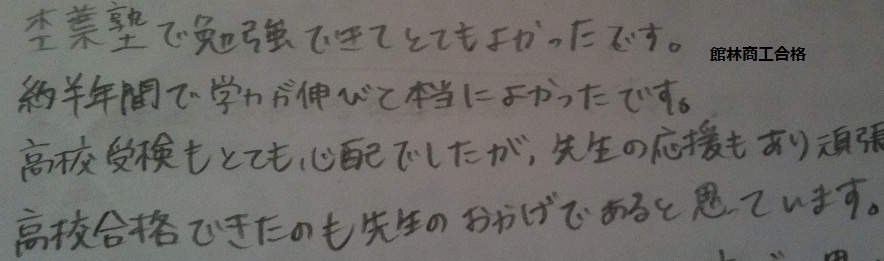 杢葉塾で勉強できてとてもよかったです。
館林商工合格
約半年間で学力が伸びて本当によかったです。
高校受検もとても心配でしたが、先生の応援もあり頑張
高校合格できたのも先生のおかげであると思ています。